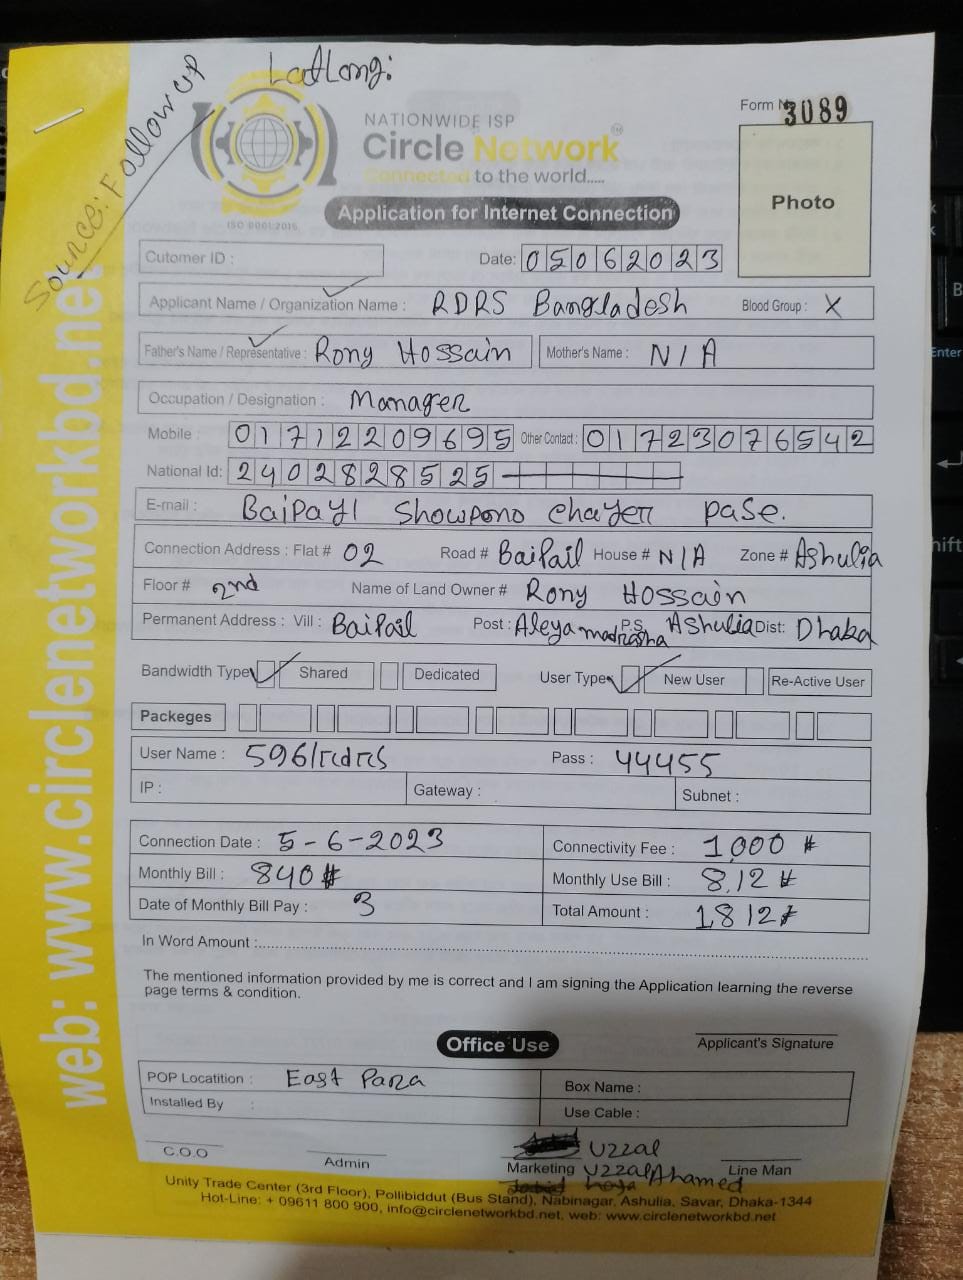 Source: Follow up
LatLong:
NATIONWIDE ISP
Circle Network
Connected to the world.....
ISO 9001:2015
Application for Internet Connection
Form No 3089
Photo
Cutomer ID :
Date: 05062023
Applicant Name / Organization Name : RDRS Bangladesh Blood Group : X
Father's Name / Representative : Rony Hossain Mother's Name : N/A
Occupation / Designation : Manager
Mobile : 01712209695 Other Contact : 01723076542
National Id: 2402828525
E-mail : Baipayl Showpono chayer pase.
Connection Address : Flat # 02 Road # Baipail House # N/A Zone # Ashulia
Floor # 2nd Name of Land Owner # Rony Hossain
Permanent Address : Vill : Baipail Post : Aleya madrasha P.S. Ashulia Dist: Dhaka
Bandwidth Type Shared Dedicated User Type New User Re-Active User
Packeges
User Name : 596/rdrs Pass : 44455
IP : Gateway : Subnet :
Connection Date : 5-6-2023 Connectivity Fee : 1,000
Monthly Bill : 840 Monthly Use Bill : 8,12
Date of Monthly Bill Pay : 3 Total Amount : 1,812
In Word Amount :
The mentioned information provided by me is correct and I am signing the Application learning the reverse
page terms & condition.
Applicant's Signature
Office Use
POP Locatition : East Para Box Name :
Installed By : Use Cable :
Uzzal
C.O.O Admin Marketing Uzzal Ahamed Line Man
Unity Trade Center (3rd Floor), Pollibiddut (Bus Stand), Nabinagar, Ashulia, Savar, Dhaka-1344
Hot-Line: + 09611 800 900, info@circlenetworkbd.net, web: www.circlenetworkbd.net
web: www.circlenetworkbd.net